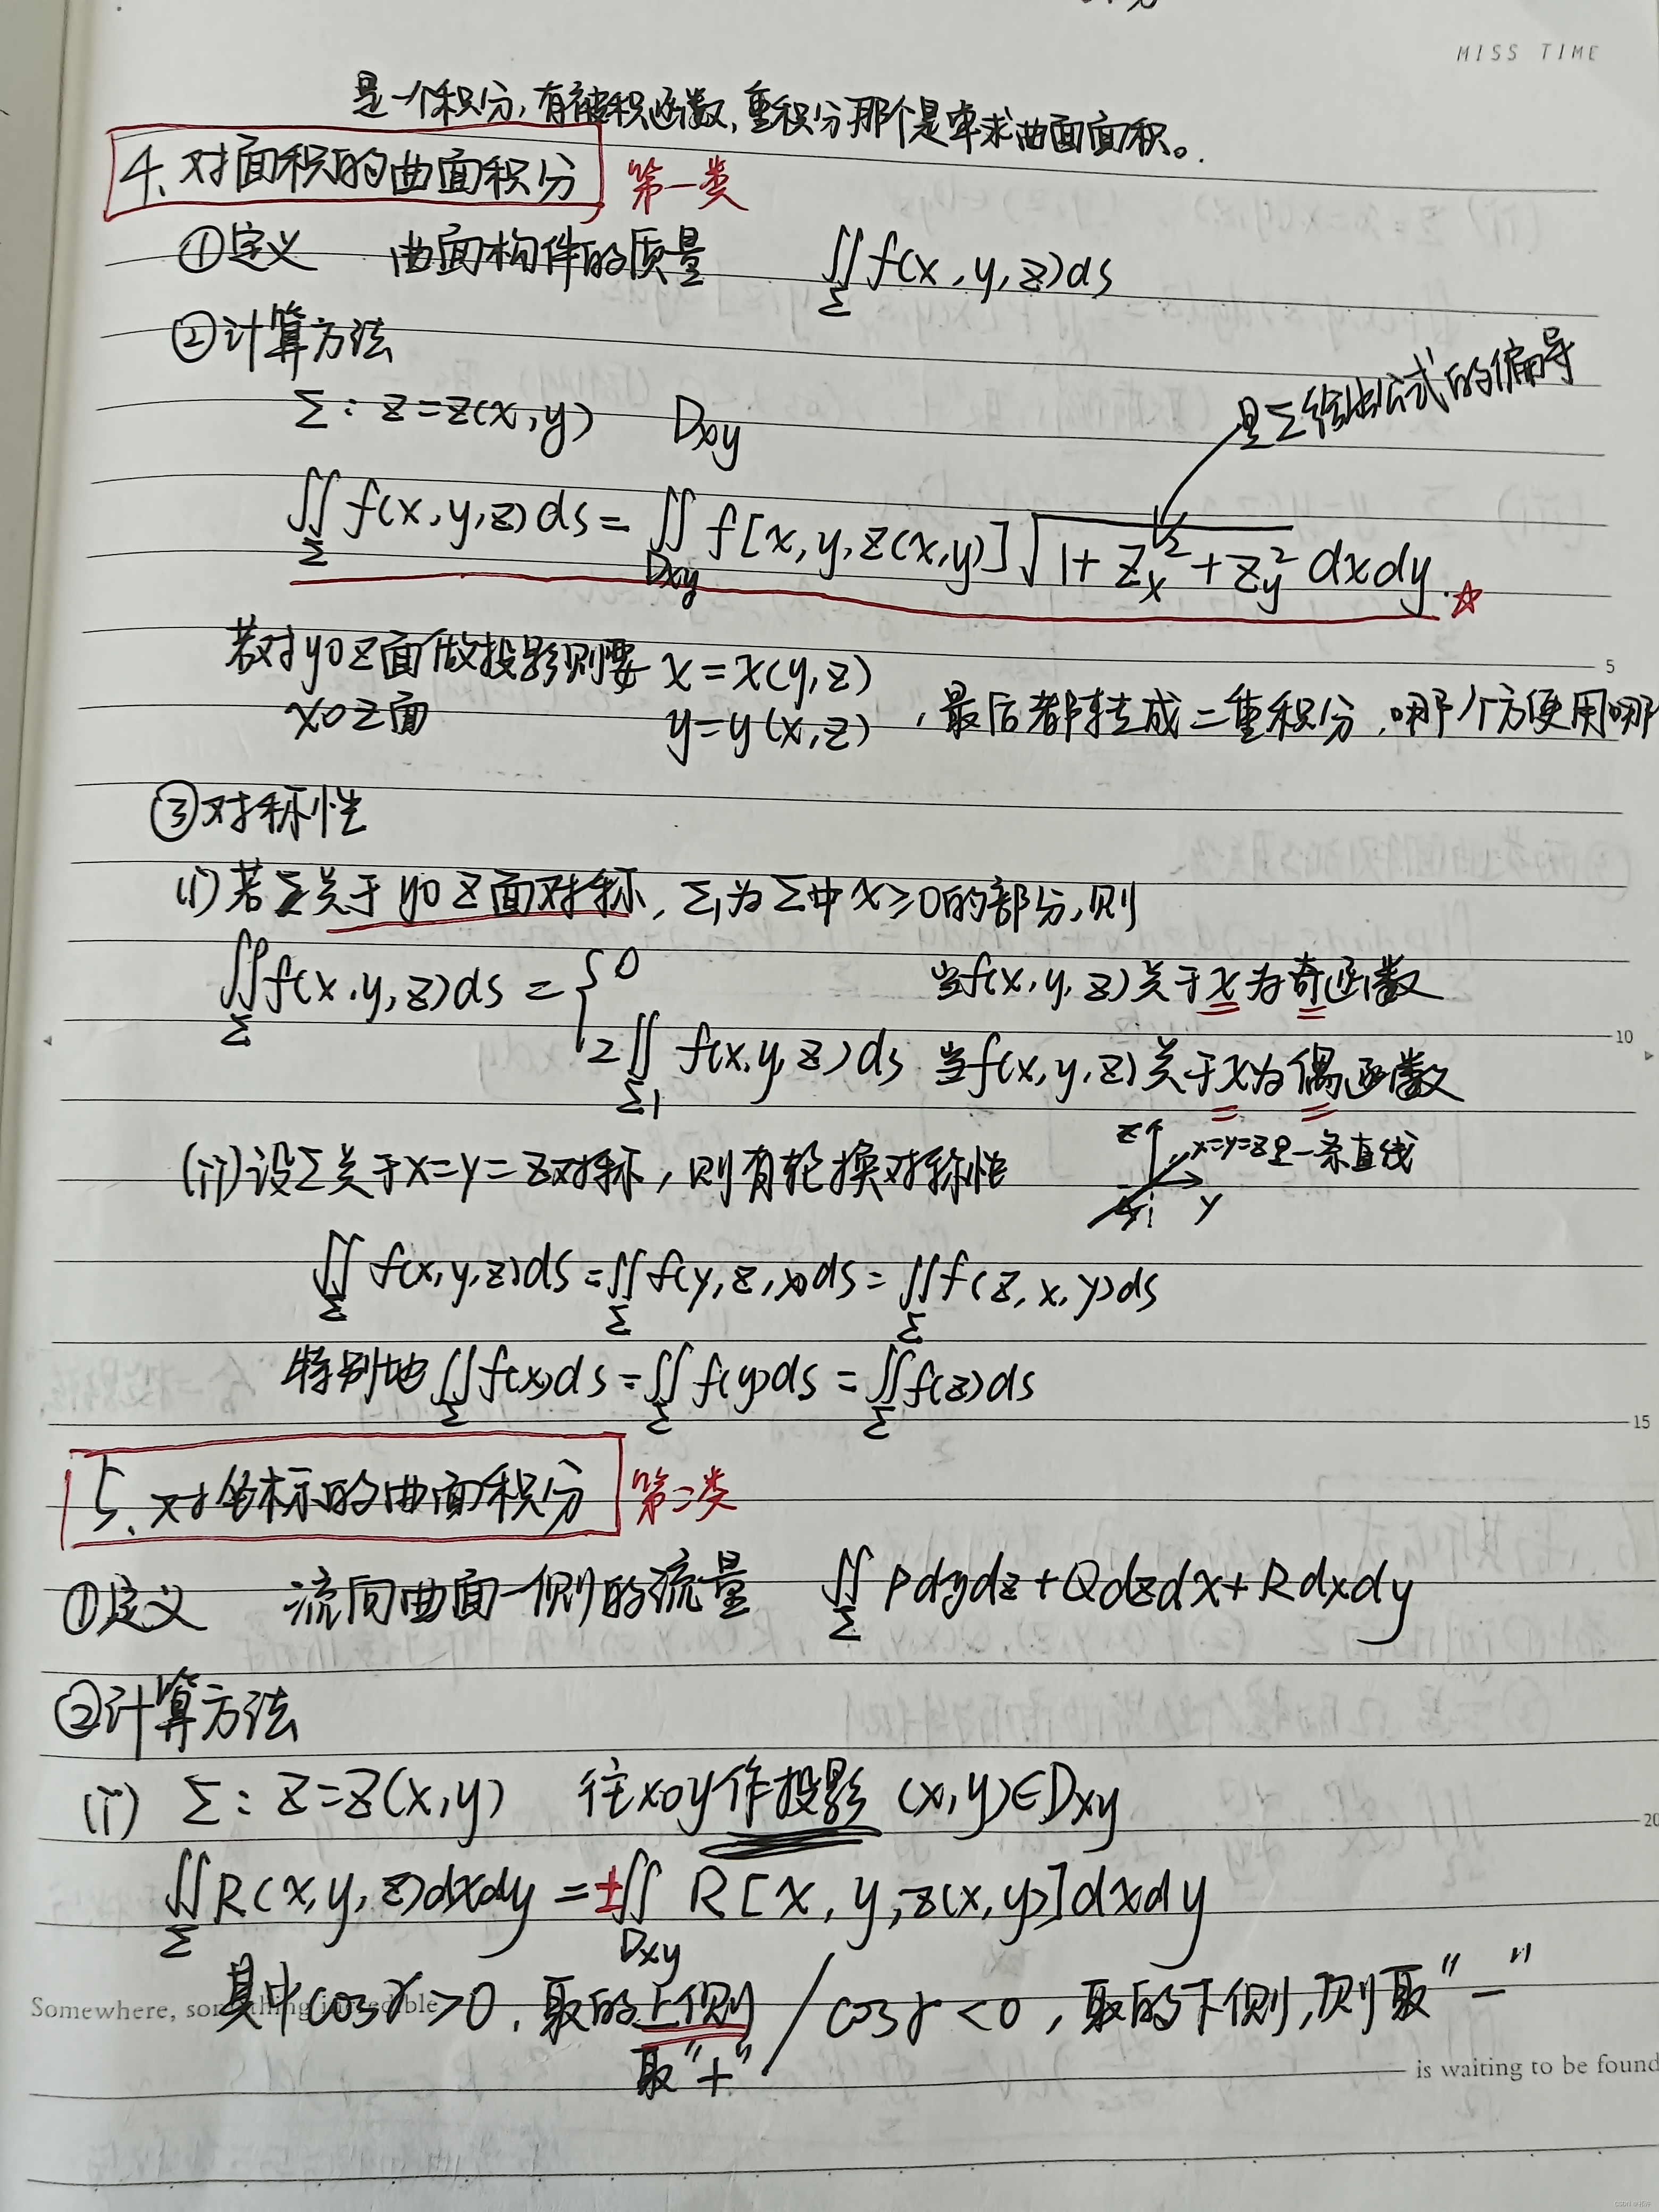 MISS TIME
是一个积分,有被积函数,重积分那个是单求曲面面积。
4、对面积的曲面积分 第一类
①定义 曲面构件的质量 ∬_Σ f(x,y,z)ds
②计算方法
是Σ给出公式的偏导
Σ: z=z(x,y) Dxy
∬_Σ f(x,y,z)ds = ∬_Dxy f[x,y,z(x,y)]√(1+z_x^2+z_y^2) dxdy. ☆
若对yoz面做投影则要 x=x(y,z)
xoz面 y=y(x,z) ,最后都转成二重积分,哪个方便用哪
5
③对称性
(i)若Σ关于yoz面对称,Σ1为Σ中x≥0的部分,则
∬_Σ f(x,y,z)ds = { 0 当f(x,y,z)关于x为奇函数
10
2∬_Σ1 f(x,y,z)ds 当f(x,y,z)关于x为偶函数
(ii)设Σ关于x=y=z对称,则有轮换对称性
z x=y=z是一条直线
y
∬_Σ f(x,y,z)ds = ∬_Σ f(y,z,x)ds = ∬_Σ f(z,x,y)ds
特别地 ∬_Σ f(x)ds = ∬_Σ f(y)ds = ∬_Σ f(z)ds
15
5、对坐标的曲面积分 第二类
①定义 流向曲面一侧的流量 ∬_Σ Pdydz+Qdzdx+Rdxdy
②计算方法
(i) Σ: z=z(x,y) 往xoy作投影 (x,y)∈Dxy
20
∬_Σ R(x,y,z)dxdy = ±∬_Dxy R[x,y,z(x,y)]dxdy
其中cosγ>0,取的上侧 / cosγ<0,取的下侧,则取"—"
取"+"
Somewhere, something incredible
is waiting to be found